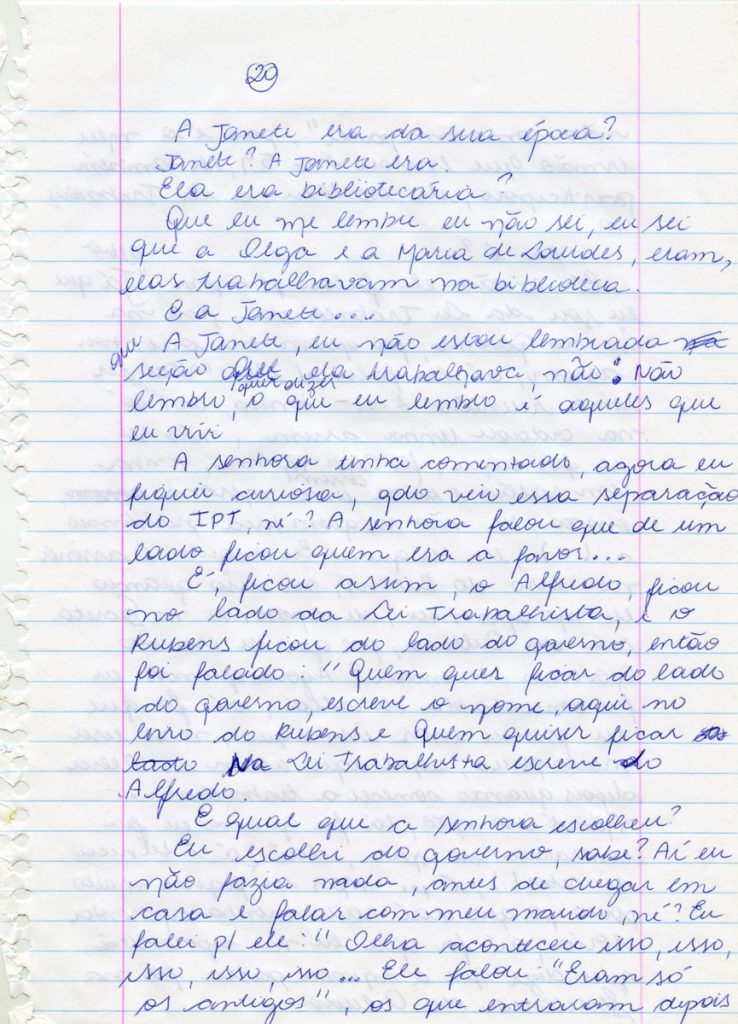 20
A Janete era da sua época?
Janete? A Janete era.
Ela era bibliotecária?
Que eu me lembre eu não sei, eu sei
que a Olga e a Maria de Lourdes, eram,
elas trabalhavam na biblioteca.
E a Janete....
A Janete, eu não estou lembrada na
que seção que ela trabalhava, não. Não
lembro, quer dizer o que eu lembro é aqueles que
eu vivi
A senhora tinha comentado, agora eu
fiquei curiosa, qdo veio essa separação
do IPT, né? A senhora falou que de um
lado ficou quem era a favor...
É, ficou assim, o Alfredo, ficou
no lado da Lei Trabalhista, e o
Rubens ficou do lado do governo, então
foi falado: "Quem quer ficar do lado
do governo, escreve o nome, aqui no
livro do Rubens e Quem quiser ficar
Na Lei Trabalhista escreve do
Alfredo.
E qual que a senhora escolheu?
Eu escolhi do governo, sabe? Aí eu
não fazia nada, antes de chegar em
casa e falar com meu marido, né? Eu
falei p/ ele: "Olha aconteceu isso, isso,
isso, isso, isso... Ele falou "Eram só
os antigos", os que entraram depois